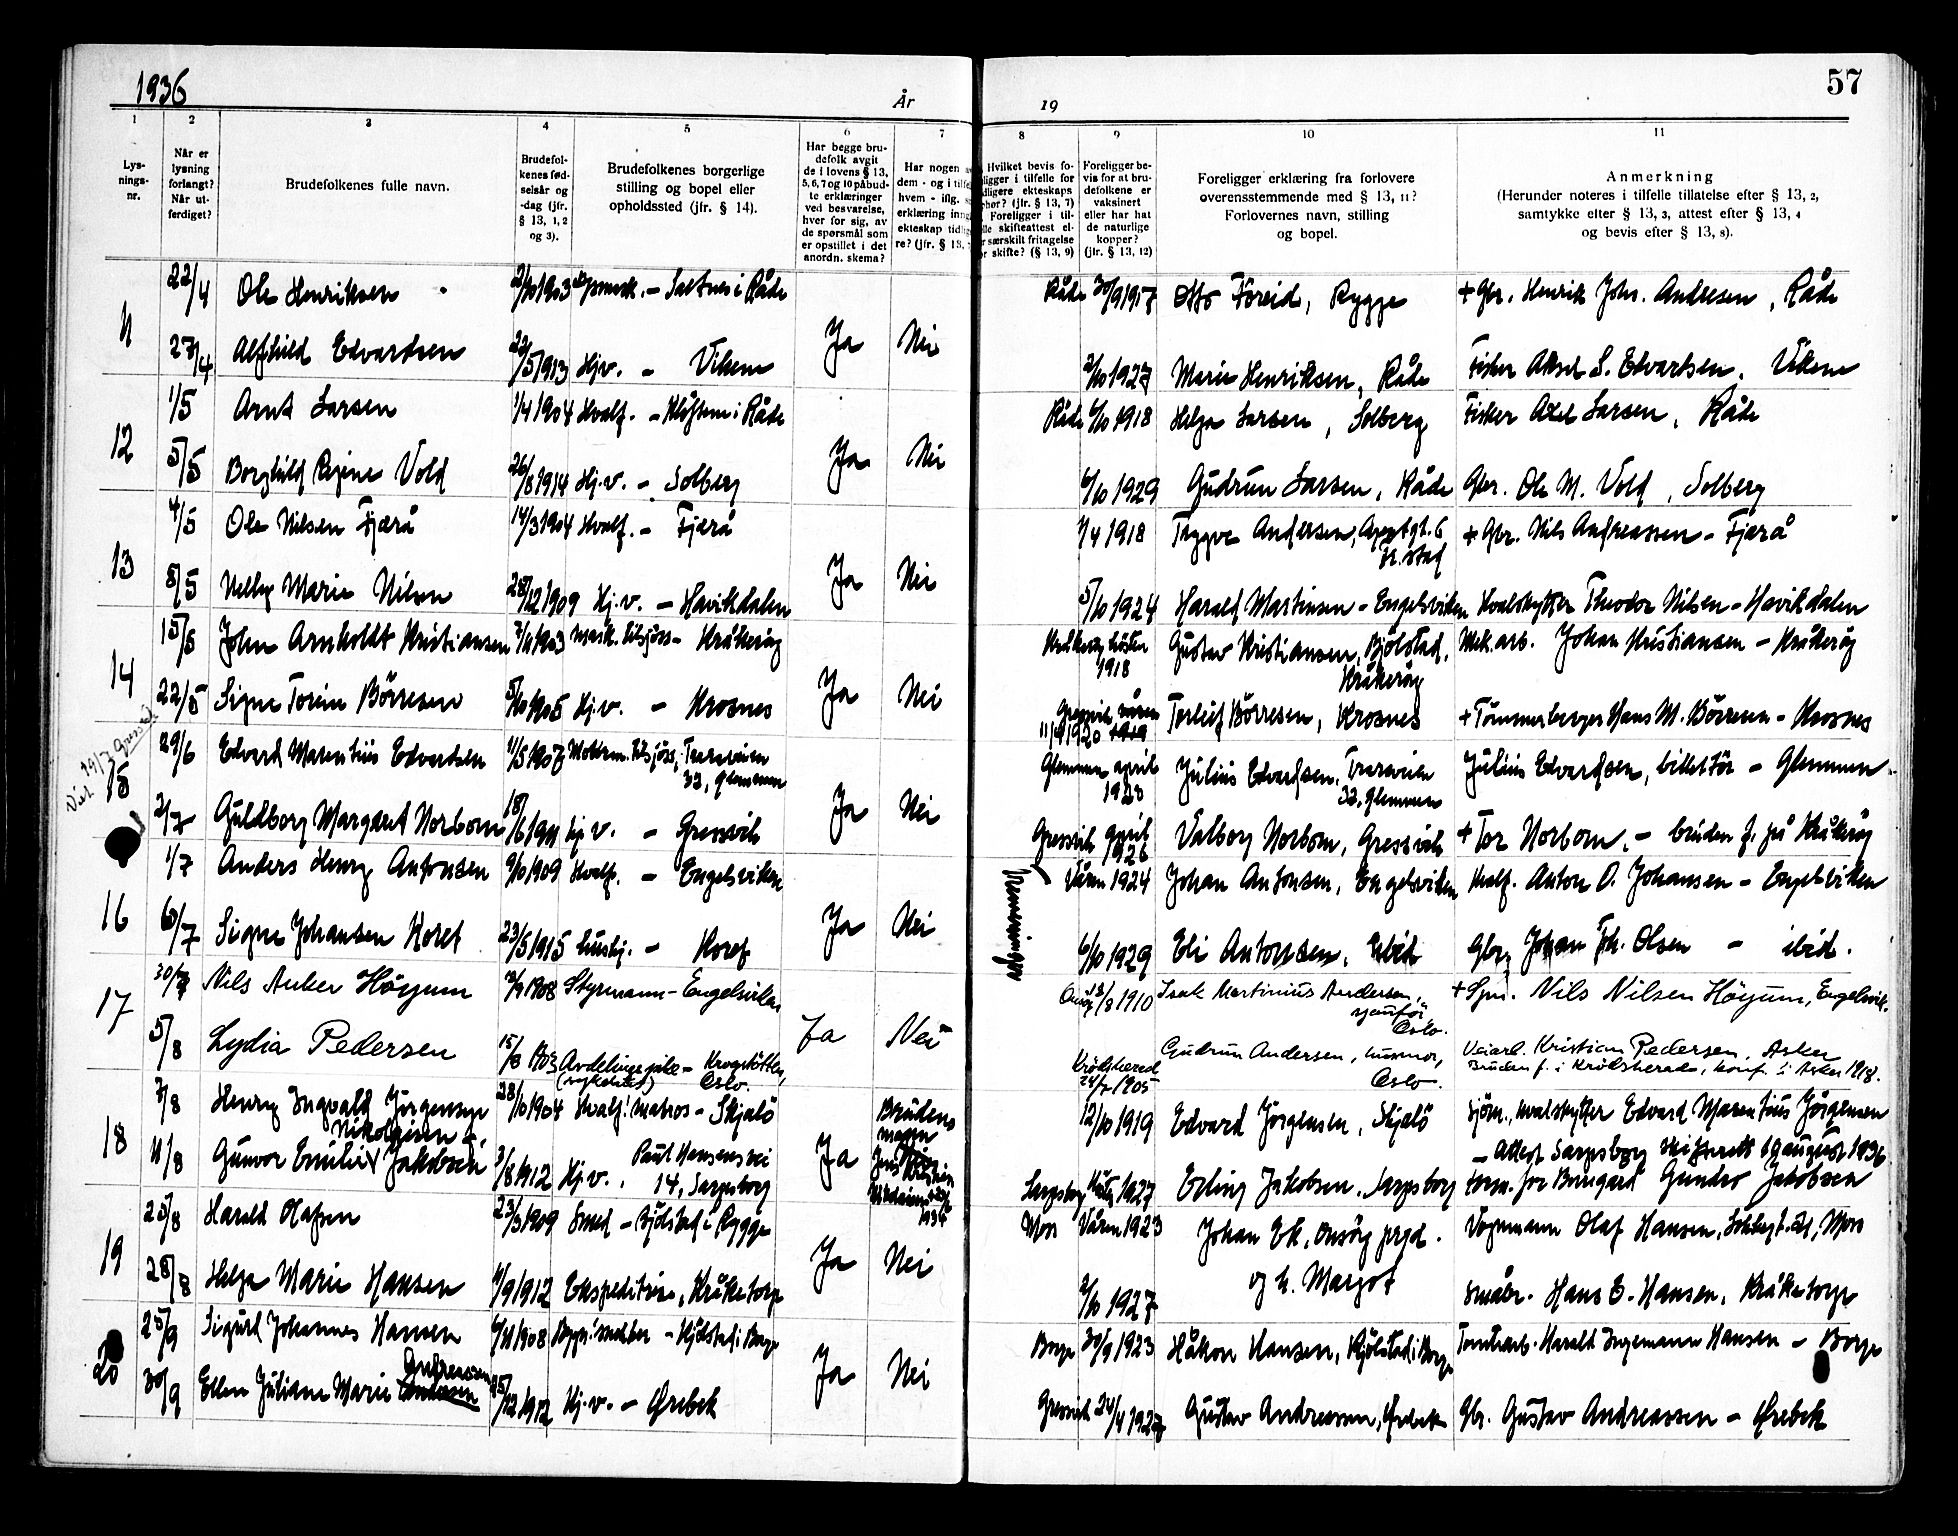 1936
År
19
57
1
2
3
4
5
6
7
8
9
10
11
Lys-
nings-
nr.
Når er
lysning
forlangt?
Når ut-
ferdiget?
Brudefolkenes fulle navn.
Brudefol-
kenes fød-
selsår og
-dag (jfr.
§ 13, 1, 2
og 3).
Brudefolkenes borgerlige
stilling og bopel eller
opholdssted (jfr. § 14).
Har begge bru-
defolk avgit
de i lovens § 13,
5, 6, 7 og 10 påbud-
te erklæringer
ved besvarelse,
hver for sig, av
de spørsmål som
er opstillet i det
anordn. skema?
Har nogen
dem - og i tilfe
hvem - iflg.
erklæring inng
ekteskap tidlig
re? (jfr. § 13,
Hvilket bevis fo-
ligger i tilfelle for
dligere ekteskaps
hør? (jfr. § 13, 7)
Foreligger i til-
lle skifteattest el-
r særskilt fritagelse
r skifte? (§ 13, 9)
Foreligger be-
vis for at bru-
defolkene er
vaksinert
eller har hat
de naturlige
kopper?
(jfr. § 13, 12)
Foreligger erklæring fra forlovere
overensstemmende med § 13, 11?
Forlovernes navn, stilling
og bopel.
Anmerkning
(Herunder noteres i tilfelle tillatelse efter § 13, 2,
samtykke efter § 13, 3, attest efter § 13, 4
og bevis efter § 13, 8).
22/4 Ole Henriksen 1903 - Saltnes i Råde Råde 30/9 1917 Otto Foreid, Rygge + Gbr. Henrik Joh. Andresen, Råde
11 Ja Nei
27/4 Alfhild Edvardsen 22/5 1913 Hj.v. - Vikene 2/10 1927 Marie Henriksen, Råde Fisker Aksel S. Edvartsen, Vikene
1/5 Arnt Larsen 1/4 1904 Hvalf. - Kløften i Råde Råde 6/10 1918 Helge Larsen, Solberg Fisker Axel Larsen, Råde
12 Ja Nei
5/5 Borghild Regine Vold 26/8 1914 Hj.v. - Solberg 6/10 1929 Gudrun Larsen, Råde Gbr. Ole M. Vold, Solberg
4/5 Ole Nilsen Fjærå 14/3 1904 Hvalf. - Fjærå 7/4 1918 Trygve Andersen, + Gbr. Nils Andreassen - Fjærå
13 Ja Nei
8/5 Nelly Marie Nilsen 28/12 1909 Hj.v. - Havikdalen 5/10 1924 Harald Martinsen - Engelsviken Hvalskytter Theodor Nilsen - Havikdalen
15/5 John Arnholdt Kristiansen 1903 Mask. tilsjøss - Kråkerøy Kråkerøy høsten Gustav Kristiansen, Bjølstad, Mek. arb. Johan Kristiansen - Kråkerøy
1918 Kråkerøy
14 Ja Nei
22/5 Signe Torine Børresen 5/10 1905 Hj.v. - Krosnes Gressvik våren Torleif Børresen, Krosnes + Tømmerberger Hans M. Børresen - Krosnes
11/4 1920 1919
29/6 Edvard Marentius Edvardsen 11/5 1907 Motorm. tilsjøss, Traraveien Glemmen april Julius Edvardsen, Traraveien Julius Edvardsen, billettør - Glemmen
32, Glemmen 1923 32, Glemmen
15 Ja Nei
2/7 Guldborg Margaret Norbom 18/6 1911 hj.v. - Gressvik Gressvik april Valborg Norbom, Gressvik + Tor Norbom, - bruden f. på Kråkerøy
1926
1/7 Anders Henry Antonsen 9/10 1909 Hvalf. - Engelsviken Våren 1924 Johan Antonsen, Engelsviken Hvalf. Anton O. Johansen - Engelsviken
16 Ja Nei
6/7 Signe Johansen Koret 23/5 1915 hushj. - Koret 6/10 1929 Eli Antonsen, ibid Gbr. Johan Fr. Olsen - ibid.
30/7 Nils Anker Höyum 1908 Styrmann - Engelsviken 13/8 1910 Isak Martinius Andersen, + Spm. Nils Nilsen Höyum, Engelsvik.
sjauför
Oslo.
17 Ja Nei
5/8 Lydia Pedersen 15/8 1903 Avdelingspike - Krogstötten, Krödsherad Gudrun Andersen, husmor, Veiarb. Kristian Pedersen, Asker
(sykehus) Oslo. 24/7 1905 Oslo. Bruden f. i Krödsherad, konf. i Asker 1918.
7/8 Henry Ingvald Jörgensen 28/10 1904 Hvalf. matros - Skjælö 12/10 1919 Edvard Jörgensen, Skjælö Sjöm., hvalskytter Edvard Marentius Jörgensen
Nikolaisen f. Brudens
18 Ja
11/8 Gunvor Emilie Jakobsen 3/8 1912 Hj.v. Paul Hansens vei - Attest Sarpsborg skifterett 10 august 1936
14, Sarpsborg Sarpsborg 1927 Erling Jakobsen, Sarpsborg Gunder Jakobsen
1934
25/8 Harald Olafsen 23/3 1909 Smed - Bjölstad i Rygge Moss Våren 1923 Johan Ek, Onsöy prgd. Vognmann Olaf Hansen, Moss
19 Ja Nei og h. Margot
28/8 Helga Marie Hansen 11/9 1912 Ekspeditrise, Kråketorp 2/10 1927 Småbr. Hans E. Hansen, Kråketorp
25/9 Sigurd Johannes Hansen 6/11 1908 Bygn.snekker - Kjölstad i Borge Borge 30/9 1923 Håkon Hansen, Kjölstad i Borge Tomtearb. Harald Ingemann Hansen - Borge
20 Ja Nei
30/9 Ellen Juliane Marie Andreassen 15/12 1912 Hj.v. - Ørebek Gressvik 24/4 1927 Gustav Andreassen, Ørebek Gbr. Gustav Andreassen - Ørebek